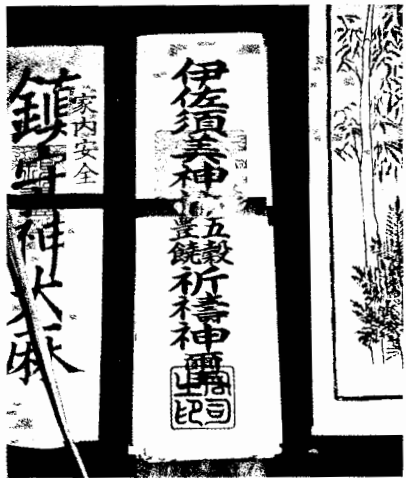 伊佐須美神社
五穀
豊饒
祈禱神璽
宮司
之印
家内安全
鎮守神大麻